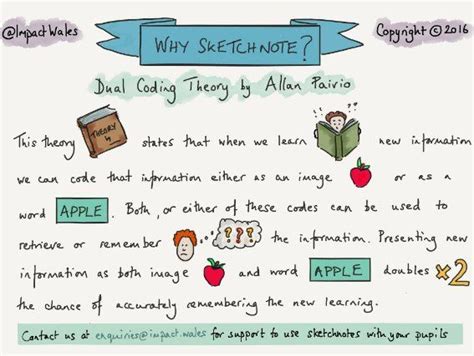 @ImpactWales
WHY SKETCHNOTE?
Copyright © 2016
Dual Coding Theory by Allan Paivio
This theory THEORY states that when we learn new information
we can code that information either as an image or as a
word APPLE. Both, or either of these codes can be used to
retrieve or remember ??? the information. Presenting new
information as both image and word APPLE doubles x2
the chance of accurately remembering the new learning.
Contact us at enquiries@impact.wales for support to use sketchnotes with your pupils